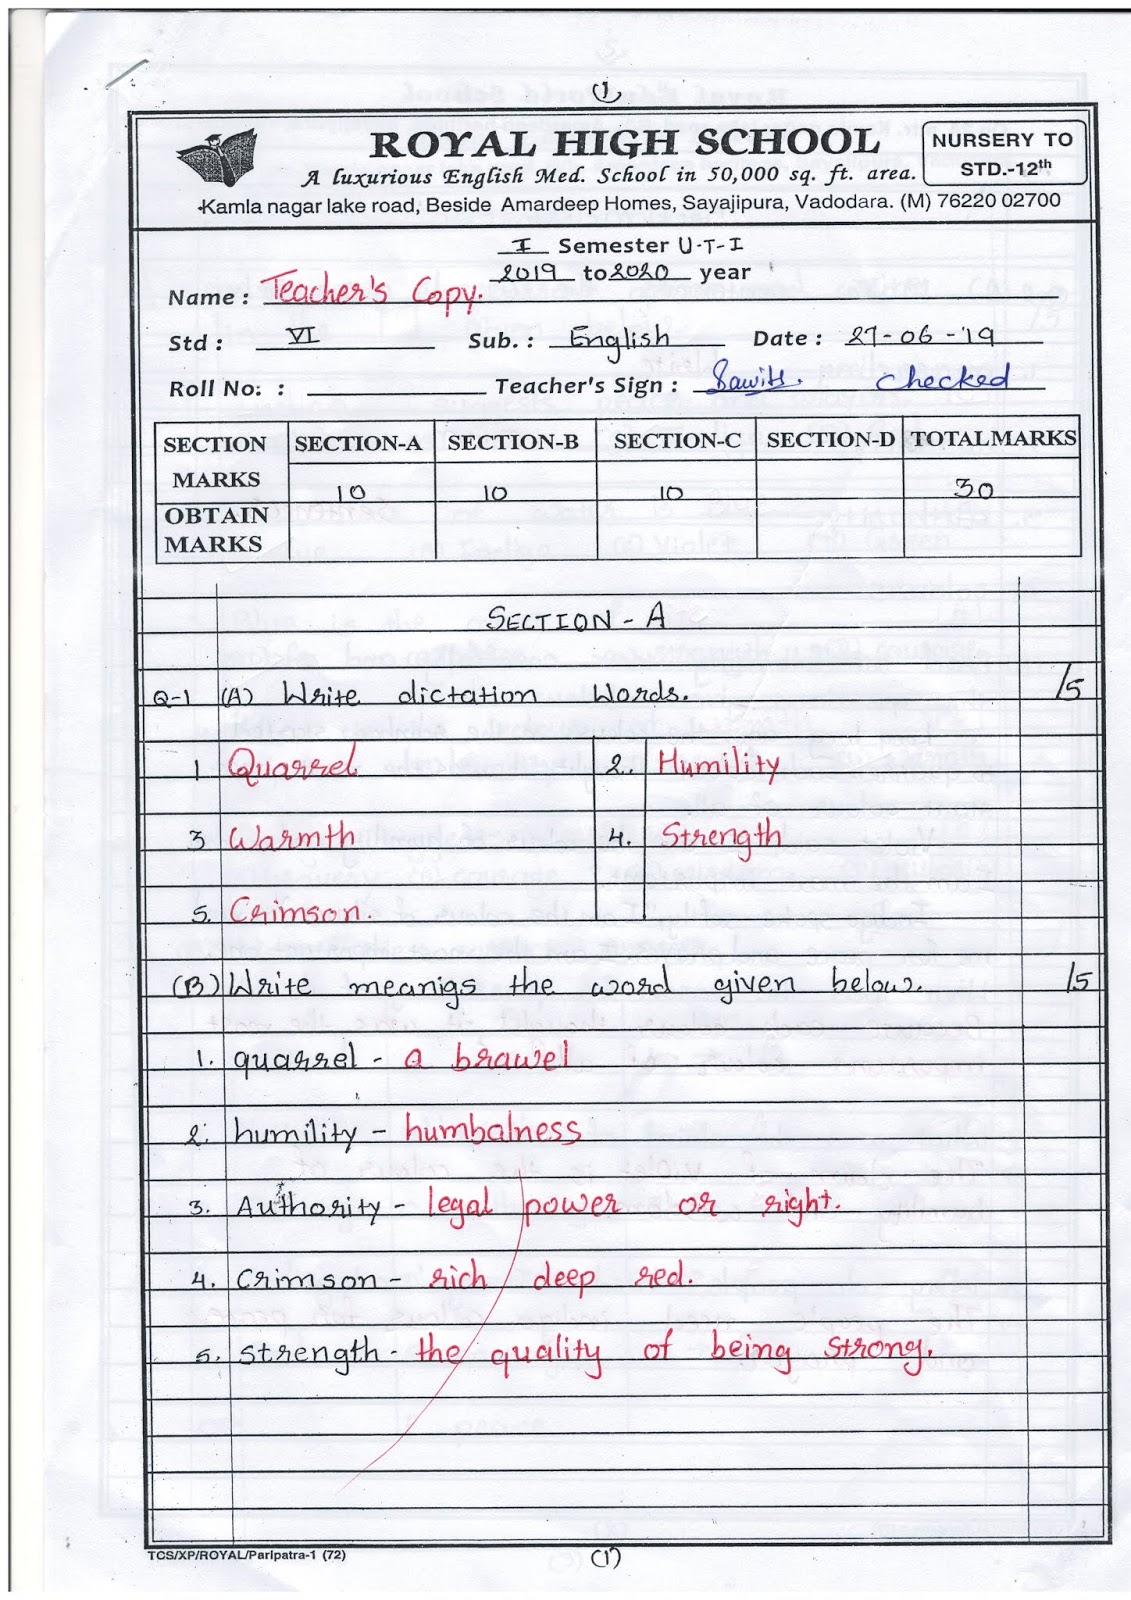 (1)
ROYAL HIGH SCHOOL
NURSERY TO
STD.-12th
A luxurious English Med. School in 50,000 sq. ft. area.
Kamla nagar lake road, Beside Amardeep Homes, Sayajipura, Vadodara. (M) 76220 02700
I Semester U-T-I
2019 to 2020 year
Name : Teacher's Copy.
Std : VI Sub. : English Date : 27-06-'19
Roll No. : Teacher's Sign : checked
SECTION MARKS SECTION-A SECTION-B SECTION-C SECTION-D TOTALMARKS
10 10 10 30
OBTAIN MARKS
SECTION - A
Q-1 (A) Write dictation words. /5
1 Quarrel 2. Humility
3 Warmth 4. Strength
5. Crimson.
(B) Write meanigs the word given below. /5
1. quarrel - a brawel
2. humility - humbalness
3. Authority - legal power or right.
4. Crimson - rich deep red.
5. strength - the quality of being strong.
TCS/XP/ROYAL/Paripatra-1 (72)
(1)